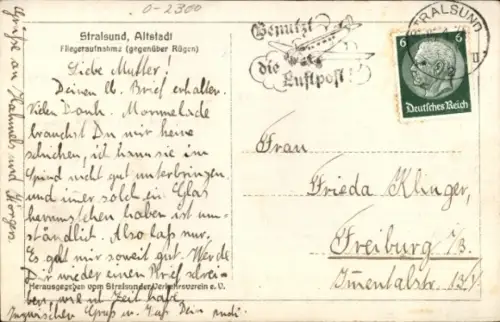 0-2300
Stralsund, Altstadt
Fliegeraufnahme (gegenüber Rügen)
Liebe Mutter!
Deinen lb. Brief erhalten.
Vielen Dank. Marmelade
brauchst Du mir keine
schicken, ich kann sie im
Spind nicht gut unterbringen
und immer solch ein Glas
herumstehen haben ist um-
ständlich. Also laß nur.
Es geht mir soweit gut. Werde
Dir wieder einen Brief schrei-
Herausgegeben vom Stralsunder Verkehrsverein e. V.
ben, wenn ich Zeit habe.
Inzwischen Gruß u. Kuß Dein
Grüße an
Benutzt
die
Luftpost!
STRALSUND
6 6
Deutsches Reich
Frau
Frieda Klinger,
Freiburg i/B.